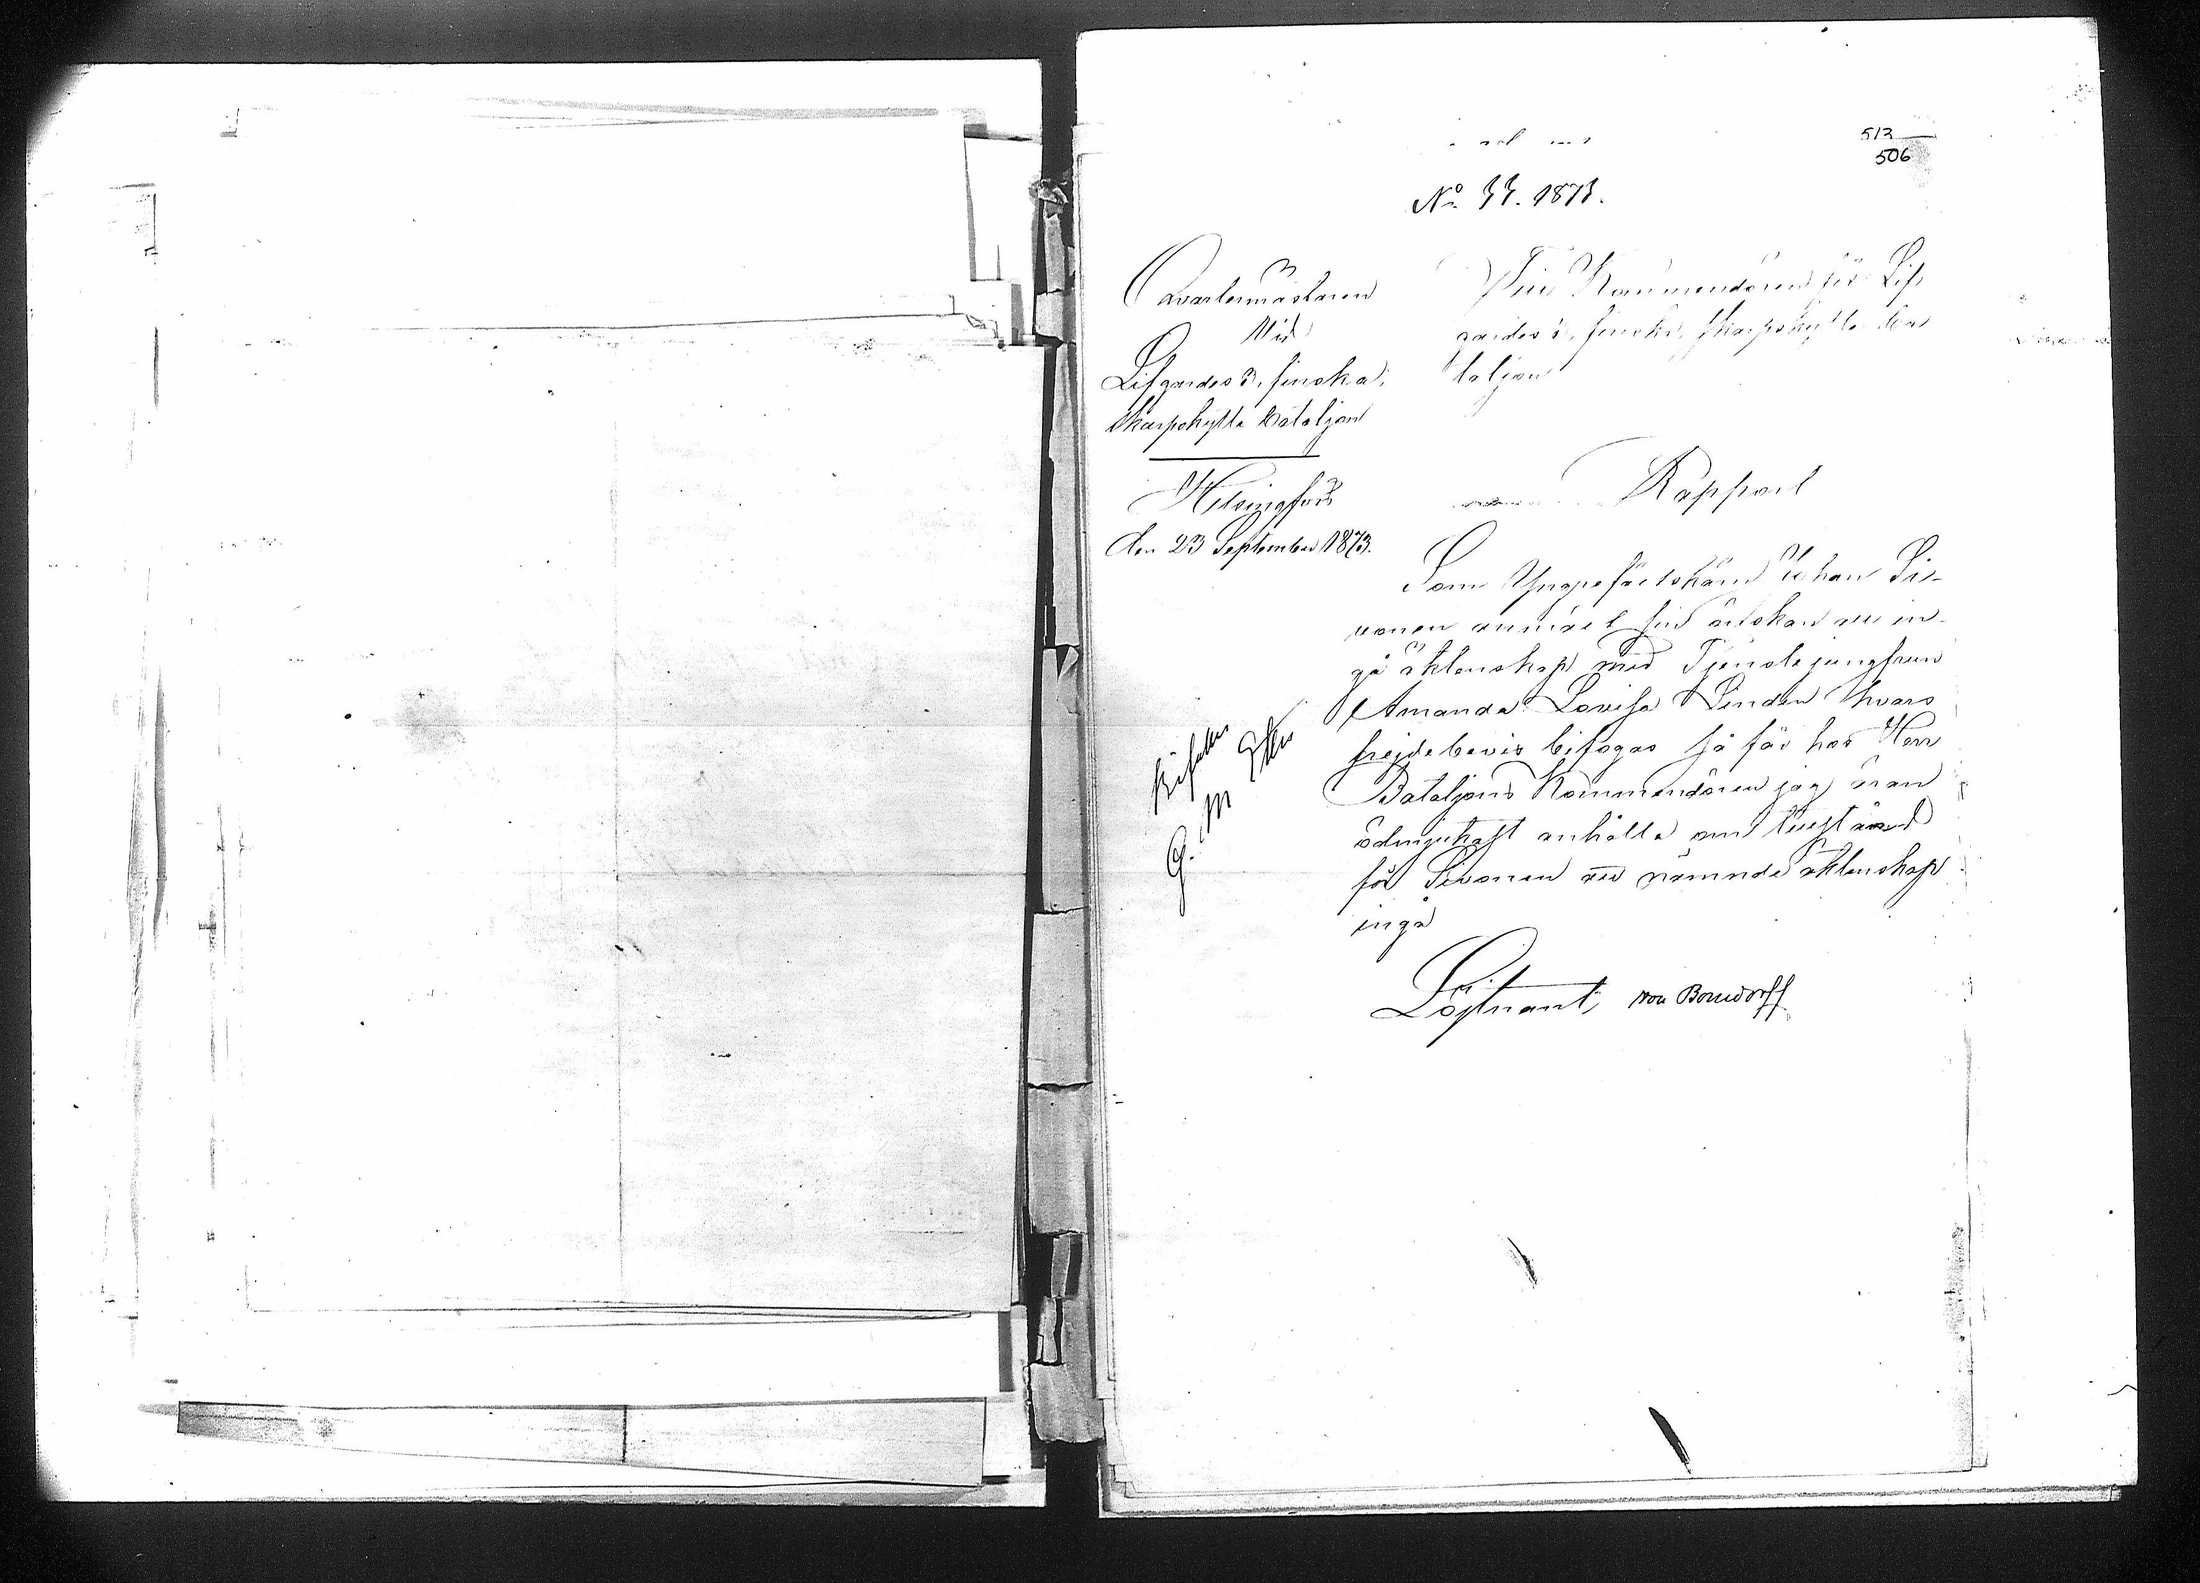 512
506
No. 33. 1873.
Qvartermästaren
Vid
Lifgardes 3. finska
Skarpskytte Bataljon
Helsingfors
den 23 September 1873.
Till Kommendören för Lif
gardes 3. finska Skarpskytte Ba
taljon
Rapport
Som Johan Si-
vonen anmält sin önskan att in-
gå äktenskap med Tjenstejungfrun
Amanda Lovisa Linden hvars
frejdebevis bifogas så får hos Herr
Bataljons Kommendören jag äran
ödmjukast anhålla om tillstånd
för Sivonen att nämnde äktenskap
ingå
Löjtnant, von Bonsdorff
Bifalles
G. M. Etter